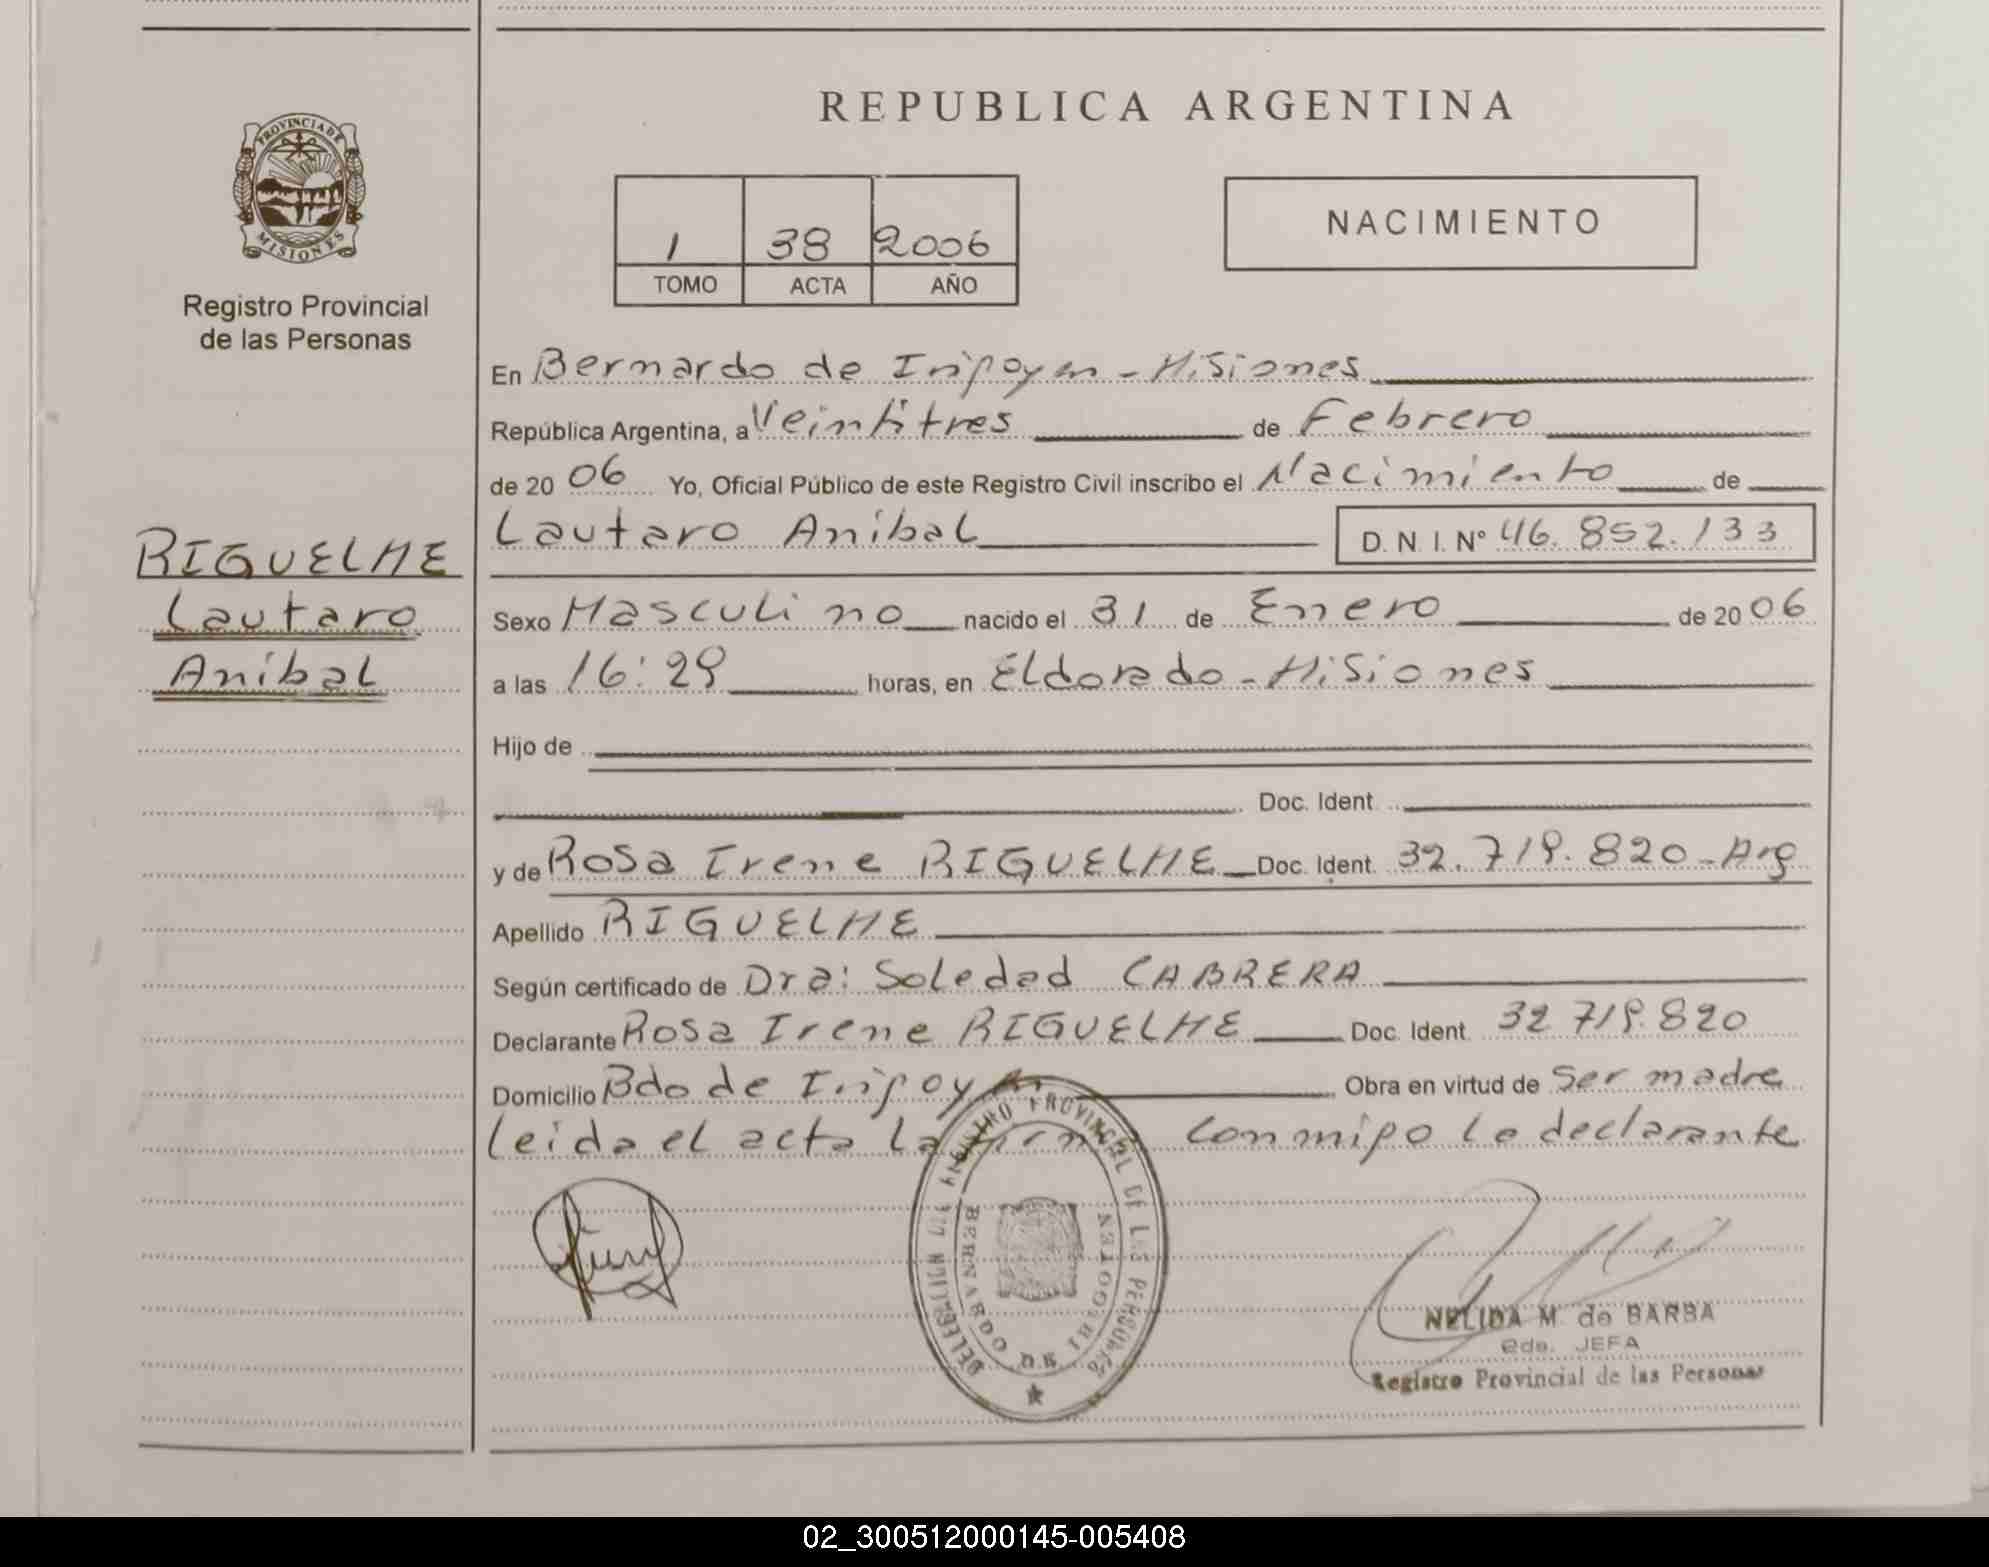 PROVINCIA DE
MISIONES
Registro Provincial
de las Personas
RIGUELME
Lautaro
Anibal
REPUBLICA ARGENTINA
1 38 2006
TOMO ACTA AÑO
NACIMIENTO
En Bernardo de Irigoyen - Misiones
República Argentina, a Veintitres de Febrero
de 2006 Yo, Oficial Público de este Registro Civil inscribo el Nacimiento de
Lautaro Anibal D. N. I. Nº 46.852.133
Sexo Masculino nacido el 31 de Enero de 2006
a las 16:29 horas, en Eldorado - Misiones
Hijo de
Doc. Ident.
y de Rosa Irene RIGUELME Doc. Ident. 32.719.820 - Arg
Apellido RIGUELME
Según certificado de Dra: Soledad CABRERA
Declarante Rosa Irene RIGUELME Doc. Ident. 32 719.820
Domicilio Bdo de Irigoyen Obra en virtud de Ser madre
Leida el acta la firma conmigo la declarante
REGISTRO PROVINCIAL DE LAS PERSONAS
BERNARDO DE IRIGOYEN
NELIDA M. de BARBA
eda. JEFA
Registro Provincial de las Personas
02_300512000145-005408